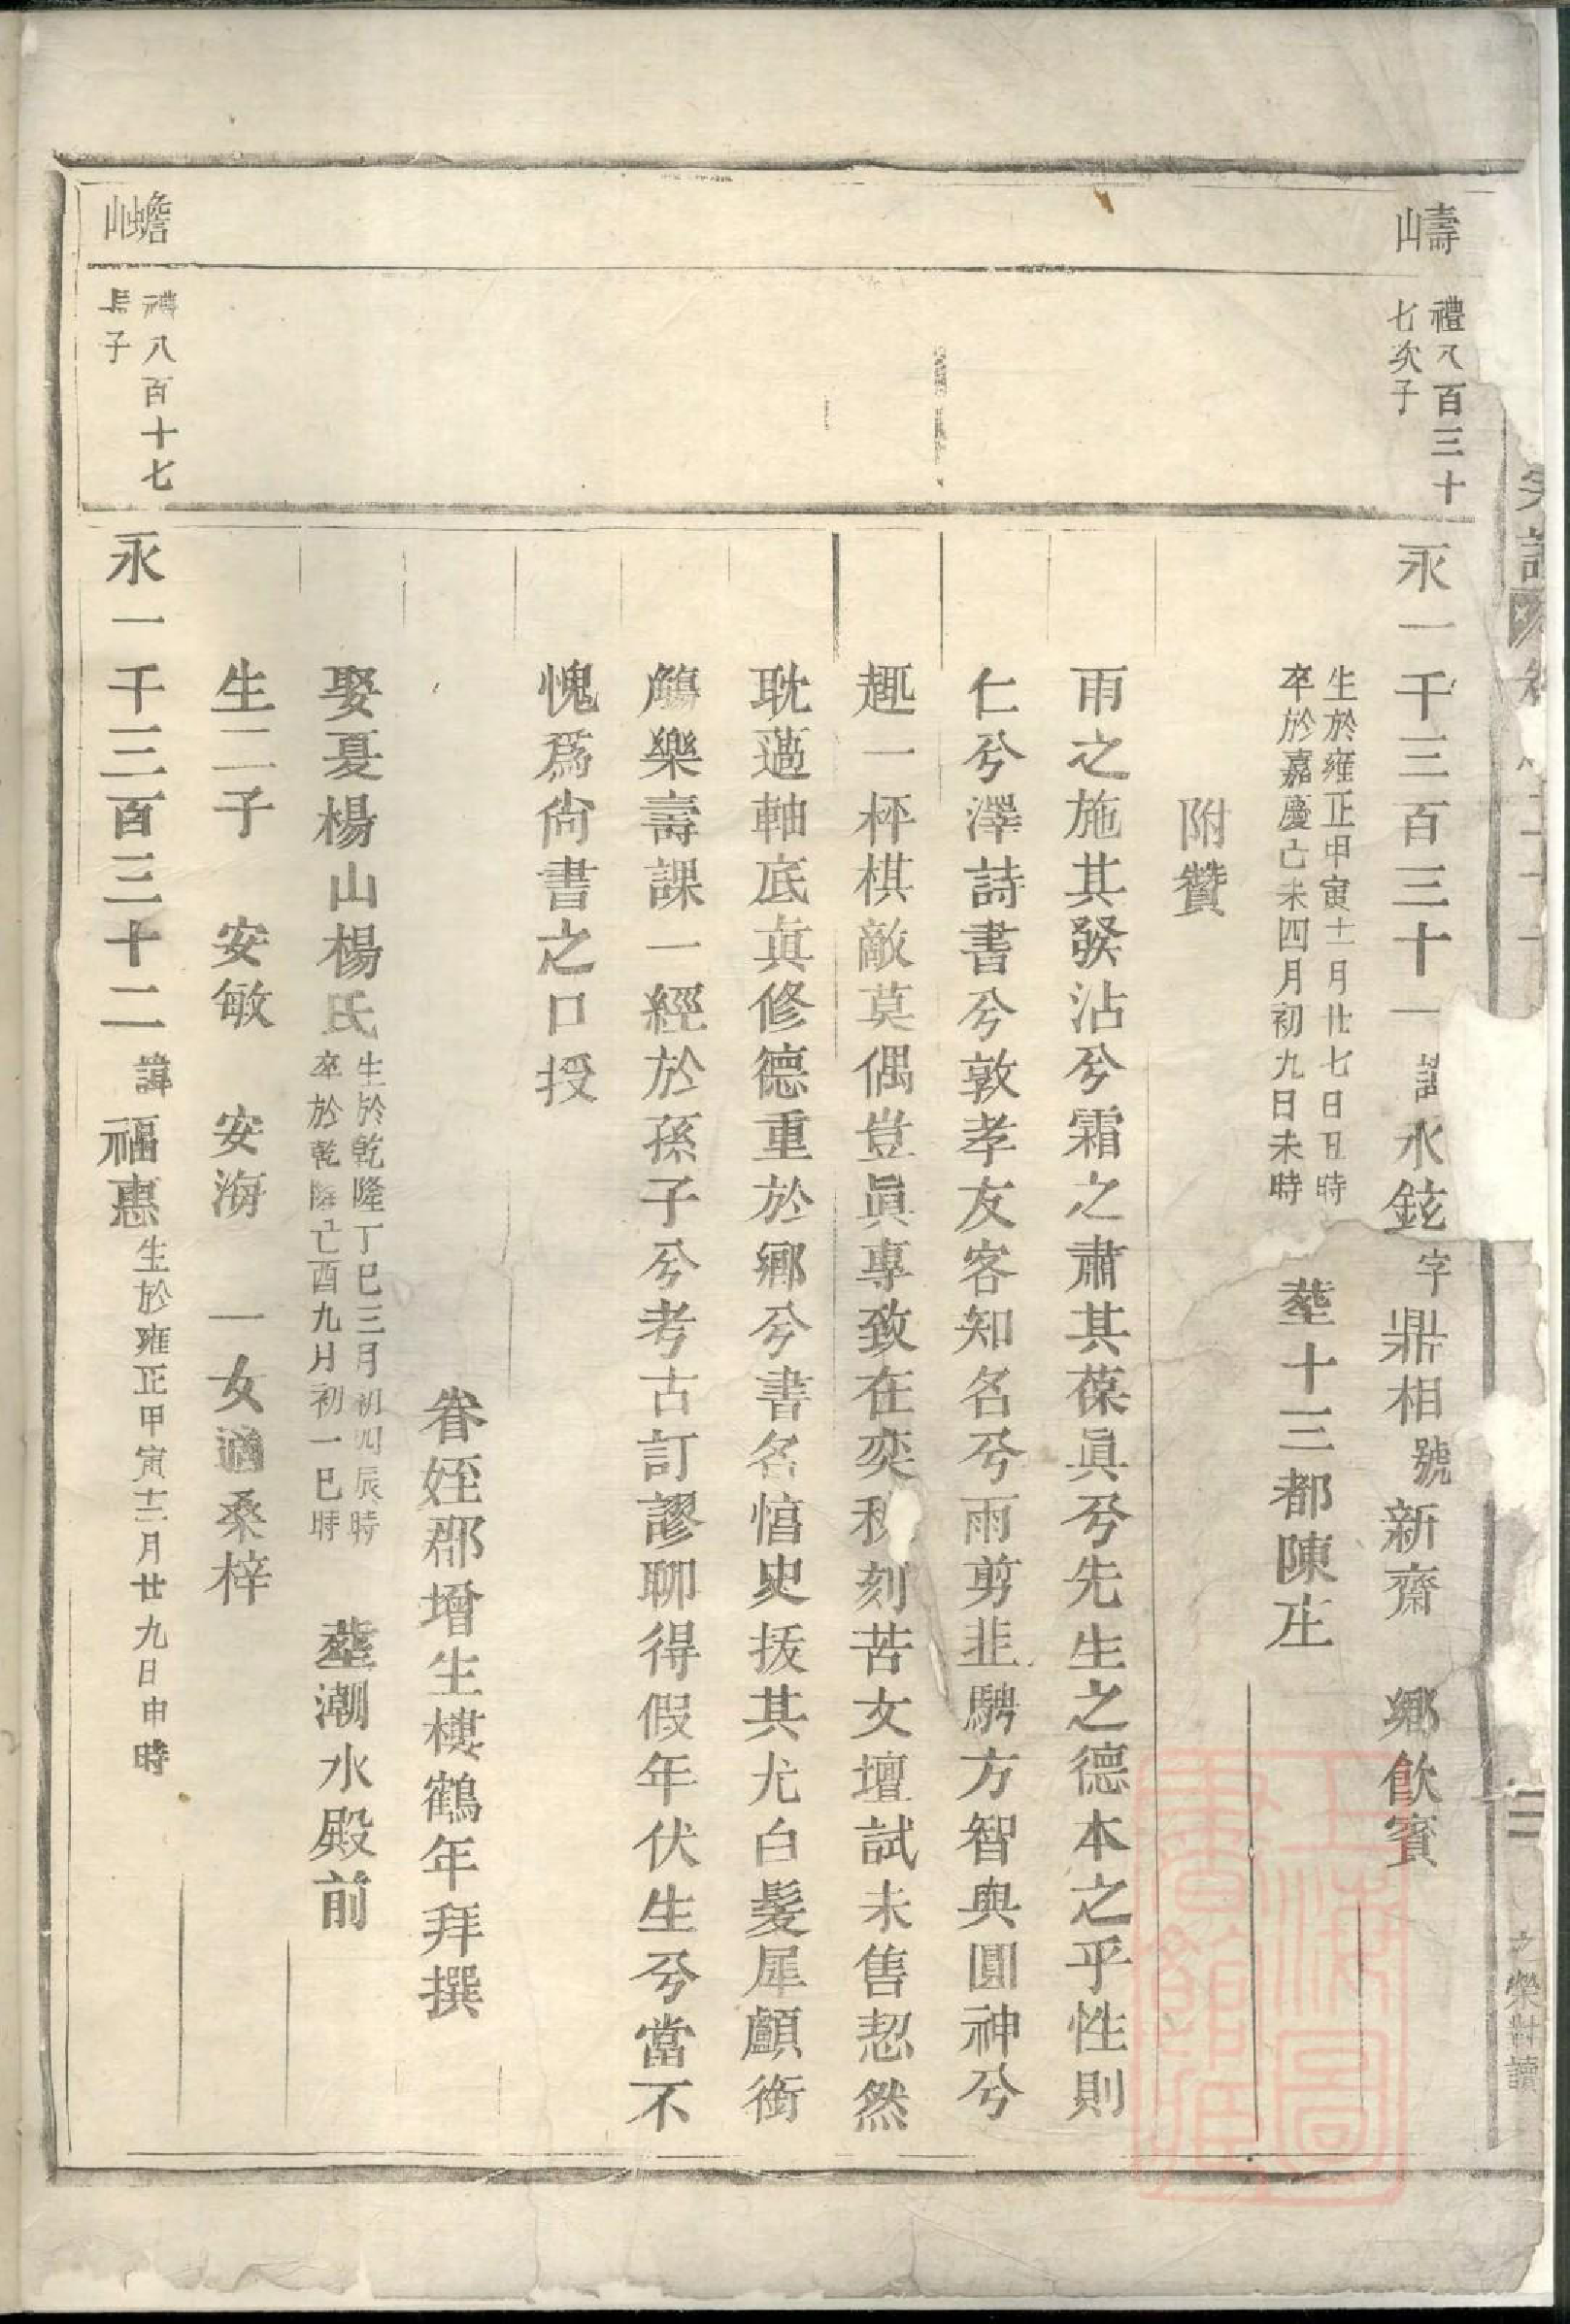 嶹
禮八百三十
七次子
永一千三百三十一 諱水鉉字鼎相號新齋 鄉飲賓
生於雍正甲寅十一月廿七日丑時
卒於嘉慶己未四月初九日未時
塟十三都陳庄
附贊
雨之施其發沾兮霜之肅其葆眞兮先生之德本之乎性則
仁兮澤詩書兮敦孝友客知名兮雨剪韭騁方智與圓神兮
趣一枰棋敵莫偶豈眞專致在奕秋刻苦文壇試未售恝然
耽薖軸底眞修德重於鄉兮書名慆史拔其尤白髮犀顱銜
觴樂壽課一經於孫子兮考古訂謬聊得假年伏生兮當不
愧爲尙書之口授
眷姪郡增生樓鶴年拜撰
娶夏楊山楊氏
生於乾隆丁巳三月初四辰時
卒於乾隆己酉九月初一巳時
塟潮水殿前
生二子 安敏 安海 一女適桑梓
嶦
禮八百十七
長子
永一千三百三十二 諱福惠生於雍正甲寅十二月廿九日申時
之榮對讀
上海圖書館藏